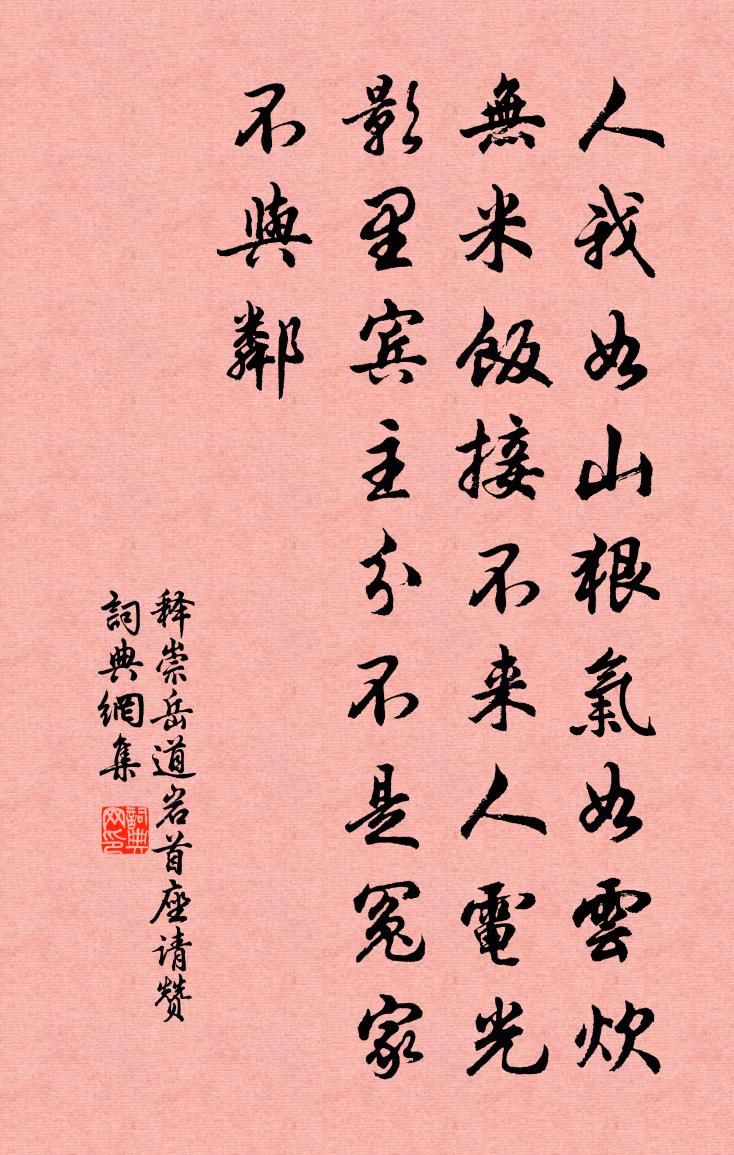 人我如山狠氣如雲炊
無米飯接不来人電光
影里宾主分不是冤家
不與鄰
释崇岳道岩首座请赞
詞典網集
詞典网印